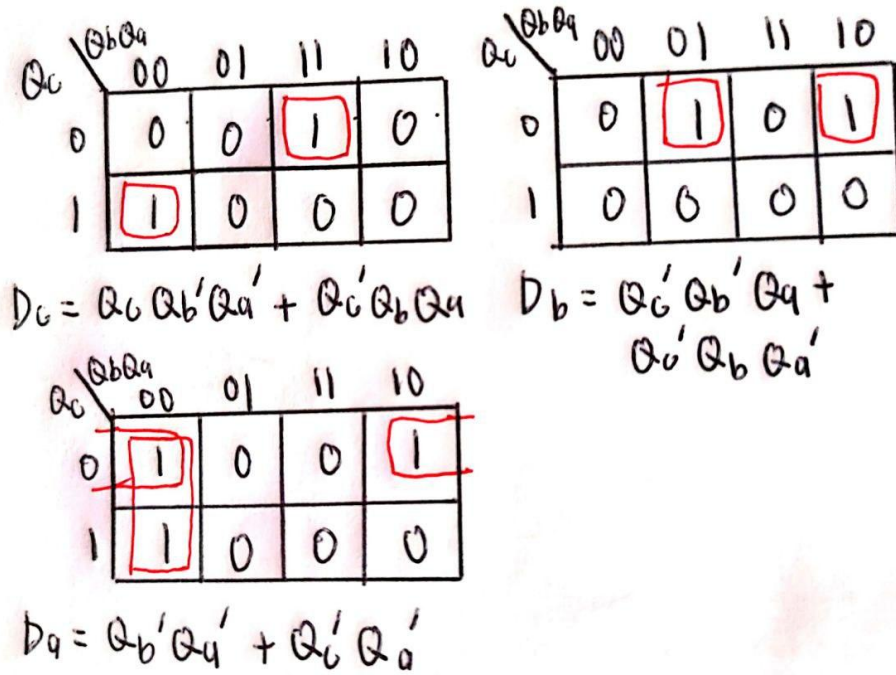 QbQa
Qc 00 01 11 10
0 0 0 1 0
1 1 0 0 0
Dc = Qc Qb' Qa' + Qc' Qb Qa
QbQa
Qc 00 01 11 10
0 0 1 0 1
1 0 0 0 0
Db = Qc' Qb' Qa +
Qc' Qb Qa'
QbQa
Qc 00 01 11 10
0 1 0 0 1
1 1 0 0 0
Da = Qb' Qa' + Qc' Qa'